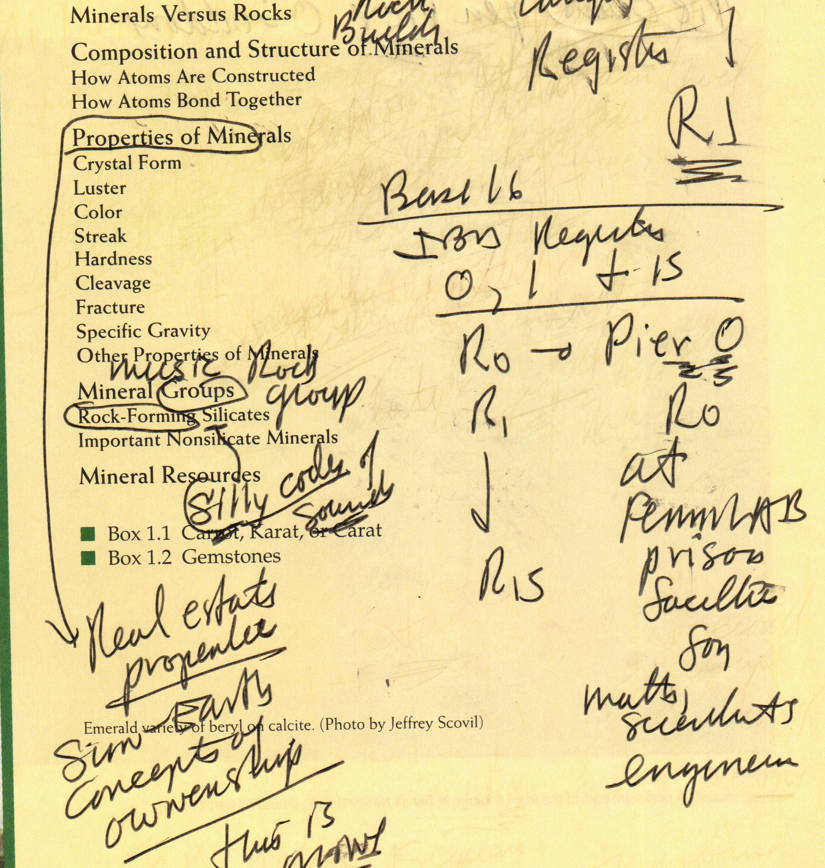 Minerals Versus Rocks
Rock
Builds
Composition and Structure of Minerals
How Atoms Are Constructed
How Atoms Bond Together
Registers
R1
Properties of Minerals
Crystal Form
Luster
Color
Streak
Hardness
Cleavage
Fracture
Specific Gravity
Other Properties of Minerals
Base 16
IBM Registers
0, 1 to 15
R0 → Pier 0
R1
R0
at
prison
R15
music Rock
group
Mineral Groups
Rock-Forming Silicates
Important Nonsilicate Minerals
Mineral Resources
Silly codes of
sounds
Box 1.1 Carrot, Karat, or Carat
Box 1.2 Gemstones
for
math,
scientists
engineers
Real estate
properties
Emerald variety of beryl on calcite. (Photo by Jeffrey Scovil)
Sun Earth
Concepts of
ownership
this is